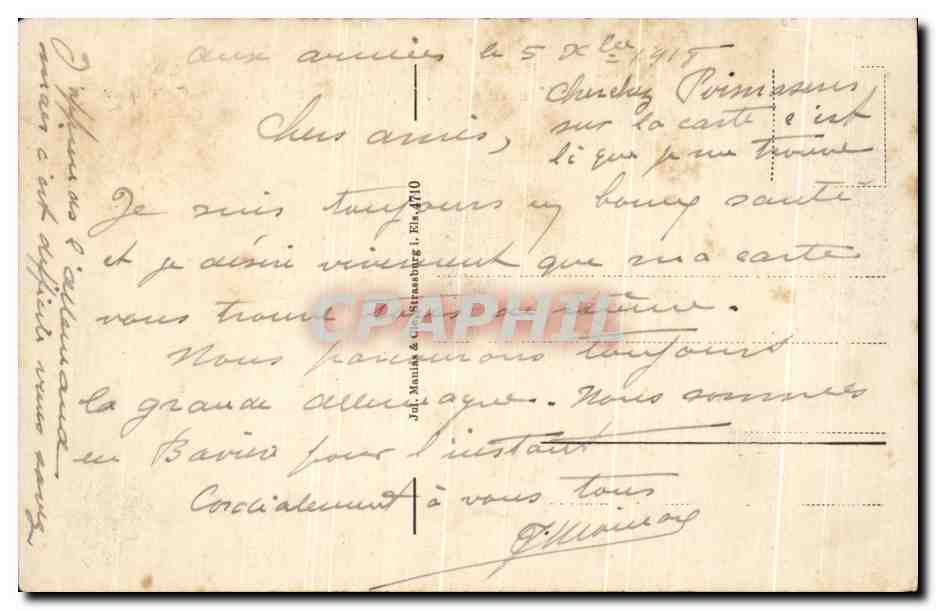 aux armées le 5 Xbre 1918
cherchez Pirmasens
sur la carte c'est
là que je me trouve
Chers amis,
Je suis toujours en bonne santé
et je désire vivement que ma carte
vous trouve tous de même.
Nous parcourons toujours
la grande allemagne. Nous sommes
en Bavière pour l'instant
Cordialement à vous tous
J'apprends l'allemand
mais c'est difficile vous savez
Jul. Manias & Cie, Strassburg i. Els. 4710
CPAPHIL